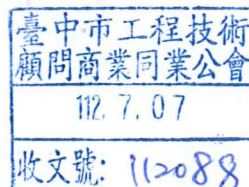 臺中市工程技術
顧問商業同業公會
112. 7. 07
收文號: 112088